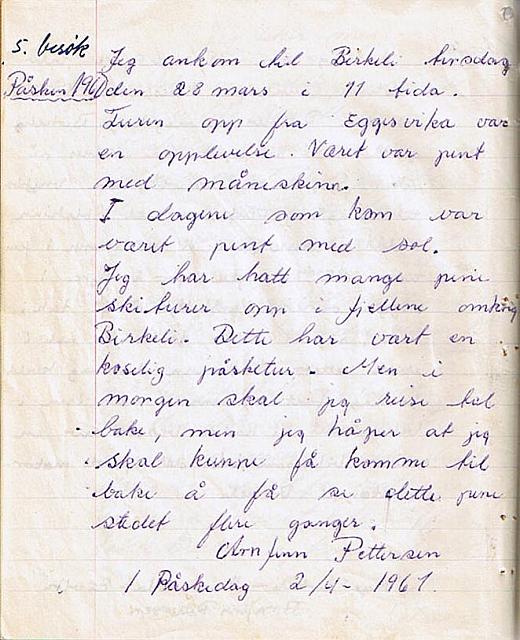 5. besøk
Påsken 1961
Jeg ankom til Birkeli tirsdag
den 28 mars i 11 tida.
Turen opp fra Eggesvika var
en opplevelse. Været var pent
med måneskinn.
I dagene som kom var
været pent med sol.
Jeg har hatt mange pene
skiturer opp i fjellene omkring
Birkeli. Dette har vært en
koselig påsketur. Men i
morgen skal jeg reise til
bake, men jeg håper at jeg
skal kunne få komme til
bake å få se dette pene
stedet flere ganger.
Arnfinn Pettersen
1 Påskedag 2/4- 1961.